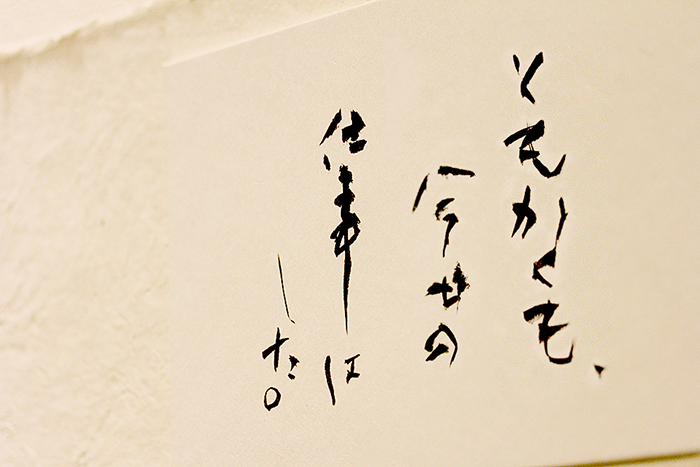 ともかくも、
今世の
仕事は
した。